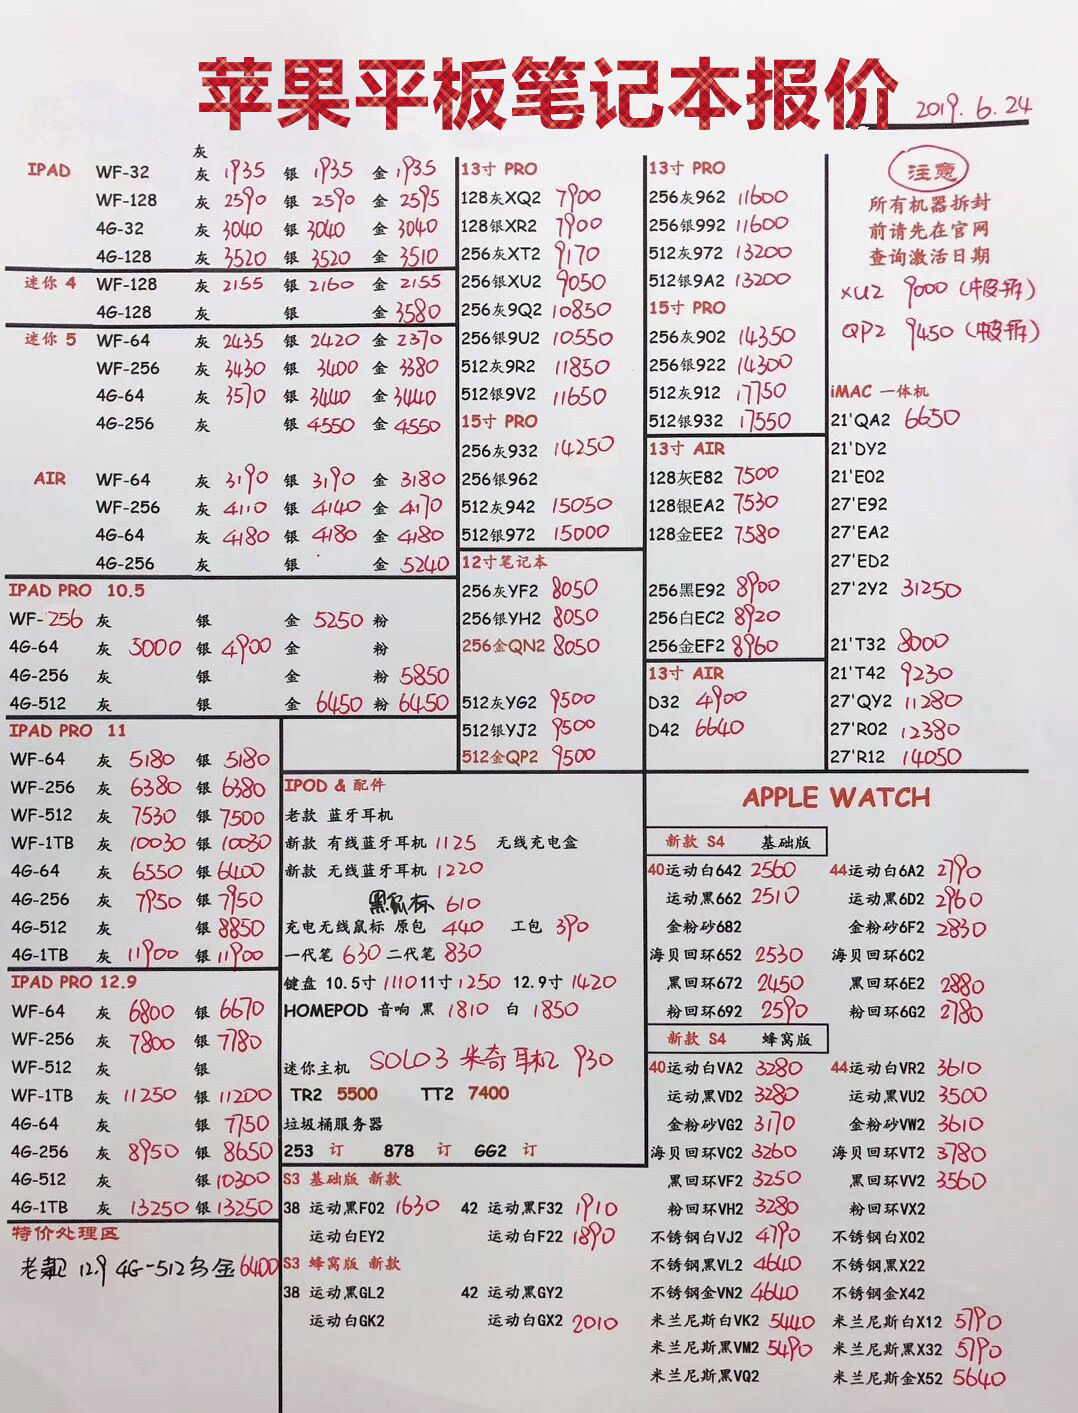 苹果平板笔记本报价
2019.6.24
灰
IPAD WF-32 灰 1935 银 1935 金 1935
WF-128 灰 2590 银 2590 金 2595
4G-32 灰 3040 银 3040 金 3040
4G-128 灰 3520 银 3520 金 3510
迷你 4 WF-128 灰 2155 银 2160 金 2155
4G-128 灰 银 金 3580
迷你 5 WF-64 灰 2435 银 2420 金 2370
WF-256 灰 3430 银 3400 金 3380
4G-64 灰 3570 银 3440 金 3440
4G-256 灰 银 4550 金 4550
AIR WF-64 灰 3190 银 3190 金 3180
WF-256 灰 4110 银 4140 金 4170
4G-64 灰 4180 银 4180 金 4180
4G-256 灰 银 金 5240
IPAD PRO 10.5
WF-256 灰 银 金 5250 粉
4G-64 灰 5000 银 4900 金 粉
4G-256 灰 银 金 粉 5850
4G-512 灰 银 金 6450 粉 6450
IPAD PRO 11
WF-64 灰 5180 银 5180
WF-256 灰 6380 银 6380
WF-512 灰 7530 银 7500
WF-1TB 灰 10030 银 10030
4G-64 灰 6550 银 6400
4G-256 灰 7950 银 7950
4G-512 灰 银 8850
4G-1TB 灰 11900 银 11900
IPAD PRO 12.9
WF-64 灰 6800 银 6670
WF-256 灰 7800 银 7780
WF-512 灰 银
WF-1TB 灰 11250 银 11200
4G-64 灰 银 7750
4G-256 灰 8950 银 8650
4G-512 灰 银 10300
4G-1TB 灰 13250 银 13250
特价处理区
老款 12.9 4G-512 金 6400
13寸 PRO
128灰XQ2 7900
128银XR2 7900
256灰XT2 9170
256银XU2 9050
256灰9Q2 10850
256银9U2 10550
512灰9R2 11850
512银9V2 11650
15寸 PRO
256灰932 14250
256银962
512灰942 15050
512银972 15000
12寸笔记本
256灰YF2 8050
256银YH2 8050
256金QN2 8050
512灰YG2 9500
512银YJ2 9500
512金QP2 9500
13寸 PRO
256灰962 11600
256银992 11600
512灰972 13200
512银9A2 13200
15寸 PRO
256灰902 14350
256银922 14300
512灰912 17750
512银932 17550
13寸 AIR
128灰E82 7500
128银EA2 7530
128金EE2 7580
256黑E92 8900
256白EC2 8920
256金EF2 8960
13寸 AIR
D32 4900
D42 6640
注意
所有机器拆封
前请先在官网
查询激活日期
XU2 9000 (中皮拆)
QP2 9450 (中皮拆)
iMAC 一体机
21'QA2 6650
21'DY2
21'E02
27'E92
27'EA2
27'ED2
27'2Y2 31250
21'T32 8000
21'T42 9230
27'QY2 11280
27'R02 12380
27'R12 14050
IPOD & 配件
老款 蓝牙耳机
新款 有线蓝牙耳机 1125 无线充电盒
新款 无线蓝牙耳机 1220
黑鼠标 610
充电无线鼠标 原包 440 工包 390
一代笔 630 二代笔 830
键盘 10.5寸 1110 11寸 1250 12.9寸 1420
HOMEPOD 音响 黑 1810 白 1850
迷你主机 SOLO3 米奇耳机 930
TR2 5500 TT2 7400
垃圾桶服务器
253 订 878 订 GG2 订
S3 基础版 新款
38 运动黑F02 1630 42 运动黑F32 1910
运动白EY2 运动白F22 1890
S3 蜂窝版 新款
38 运动黑GL2 42 运动黑GY2
运动白GK2 运动白GX2 2010
APPLE WATCH
新款 S4 基础版
40运动白642 2560 44运动白6A2 2790
运动黑662 2510 运动黑6D2 2960
金粉砂682 金粉砂6F2 2830
海贝回环652 2530 海贝回环6C2
黑回环672 2450 黑回环6E2 2880
粉回环692 2590 粉回环6G2 2780
新款 S4 蜂窝版
40运动白VA2 3280 44运动白VR2 3610
运动黑VD2 3280 运动黑VU2 3500
金粉砂VG2 3170 金粉砂VW2 3610
海贝回环VC2 3260 海贝回环VT2 3780
黑回环VF2 3250 黑回环VV2 3560
粉回环VH2 3280 粉回环VX2
不锈钢白VJ2 4790 不锈钢白X02
不锈钢黑VL2 4640 不锈钢黑X22
不锈钢金VN2 4640 不锈钢金X42
米兰尼斯白VK2 5440 米兰尼斯白X12 5790
米兰尼斯黑VM2 5490 米兰尼斯黑X32 5790
米兰尼斯黑VQ2 米兰尼斯金X52 5640